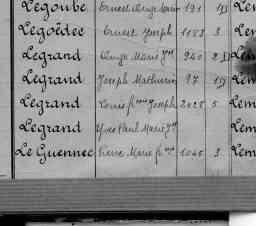 Legoube Ernest Ange Louis 191 Lem
Legoëdec Ernest Joseph 1153 3 Lem
Legrand Ange Marie Jh 940 2 Lem
Legrand Joseph Mathurin 97 19 Lem
Legrand Louis 2025 5 Lem
Legrand Yves Paul Marie Jh
Le Guennec Pierre Marie 1045 3 Lem